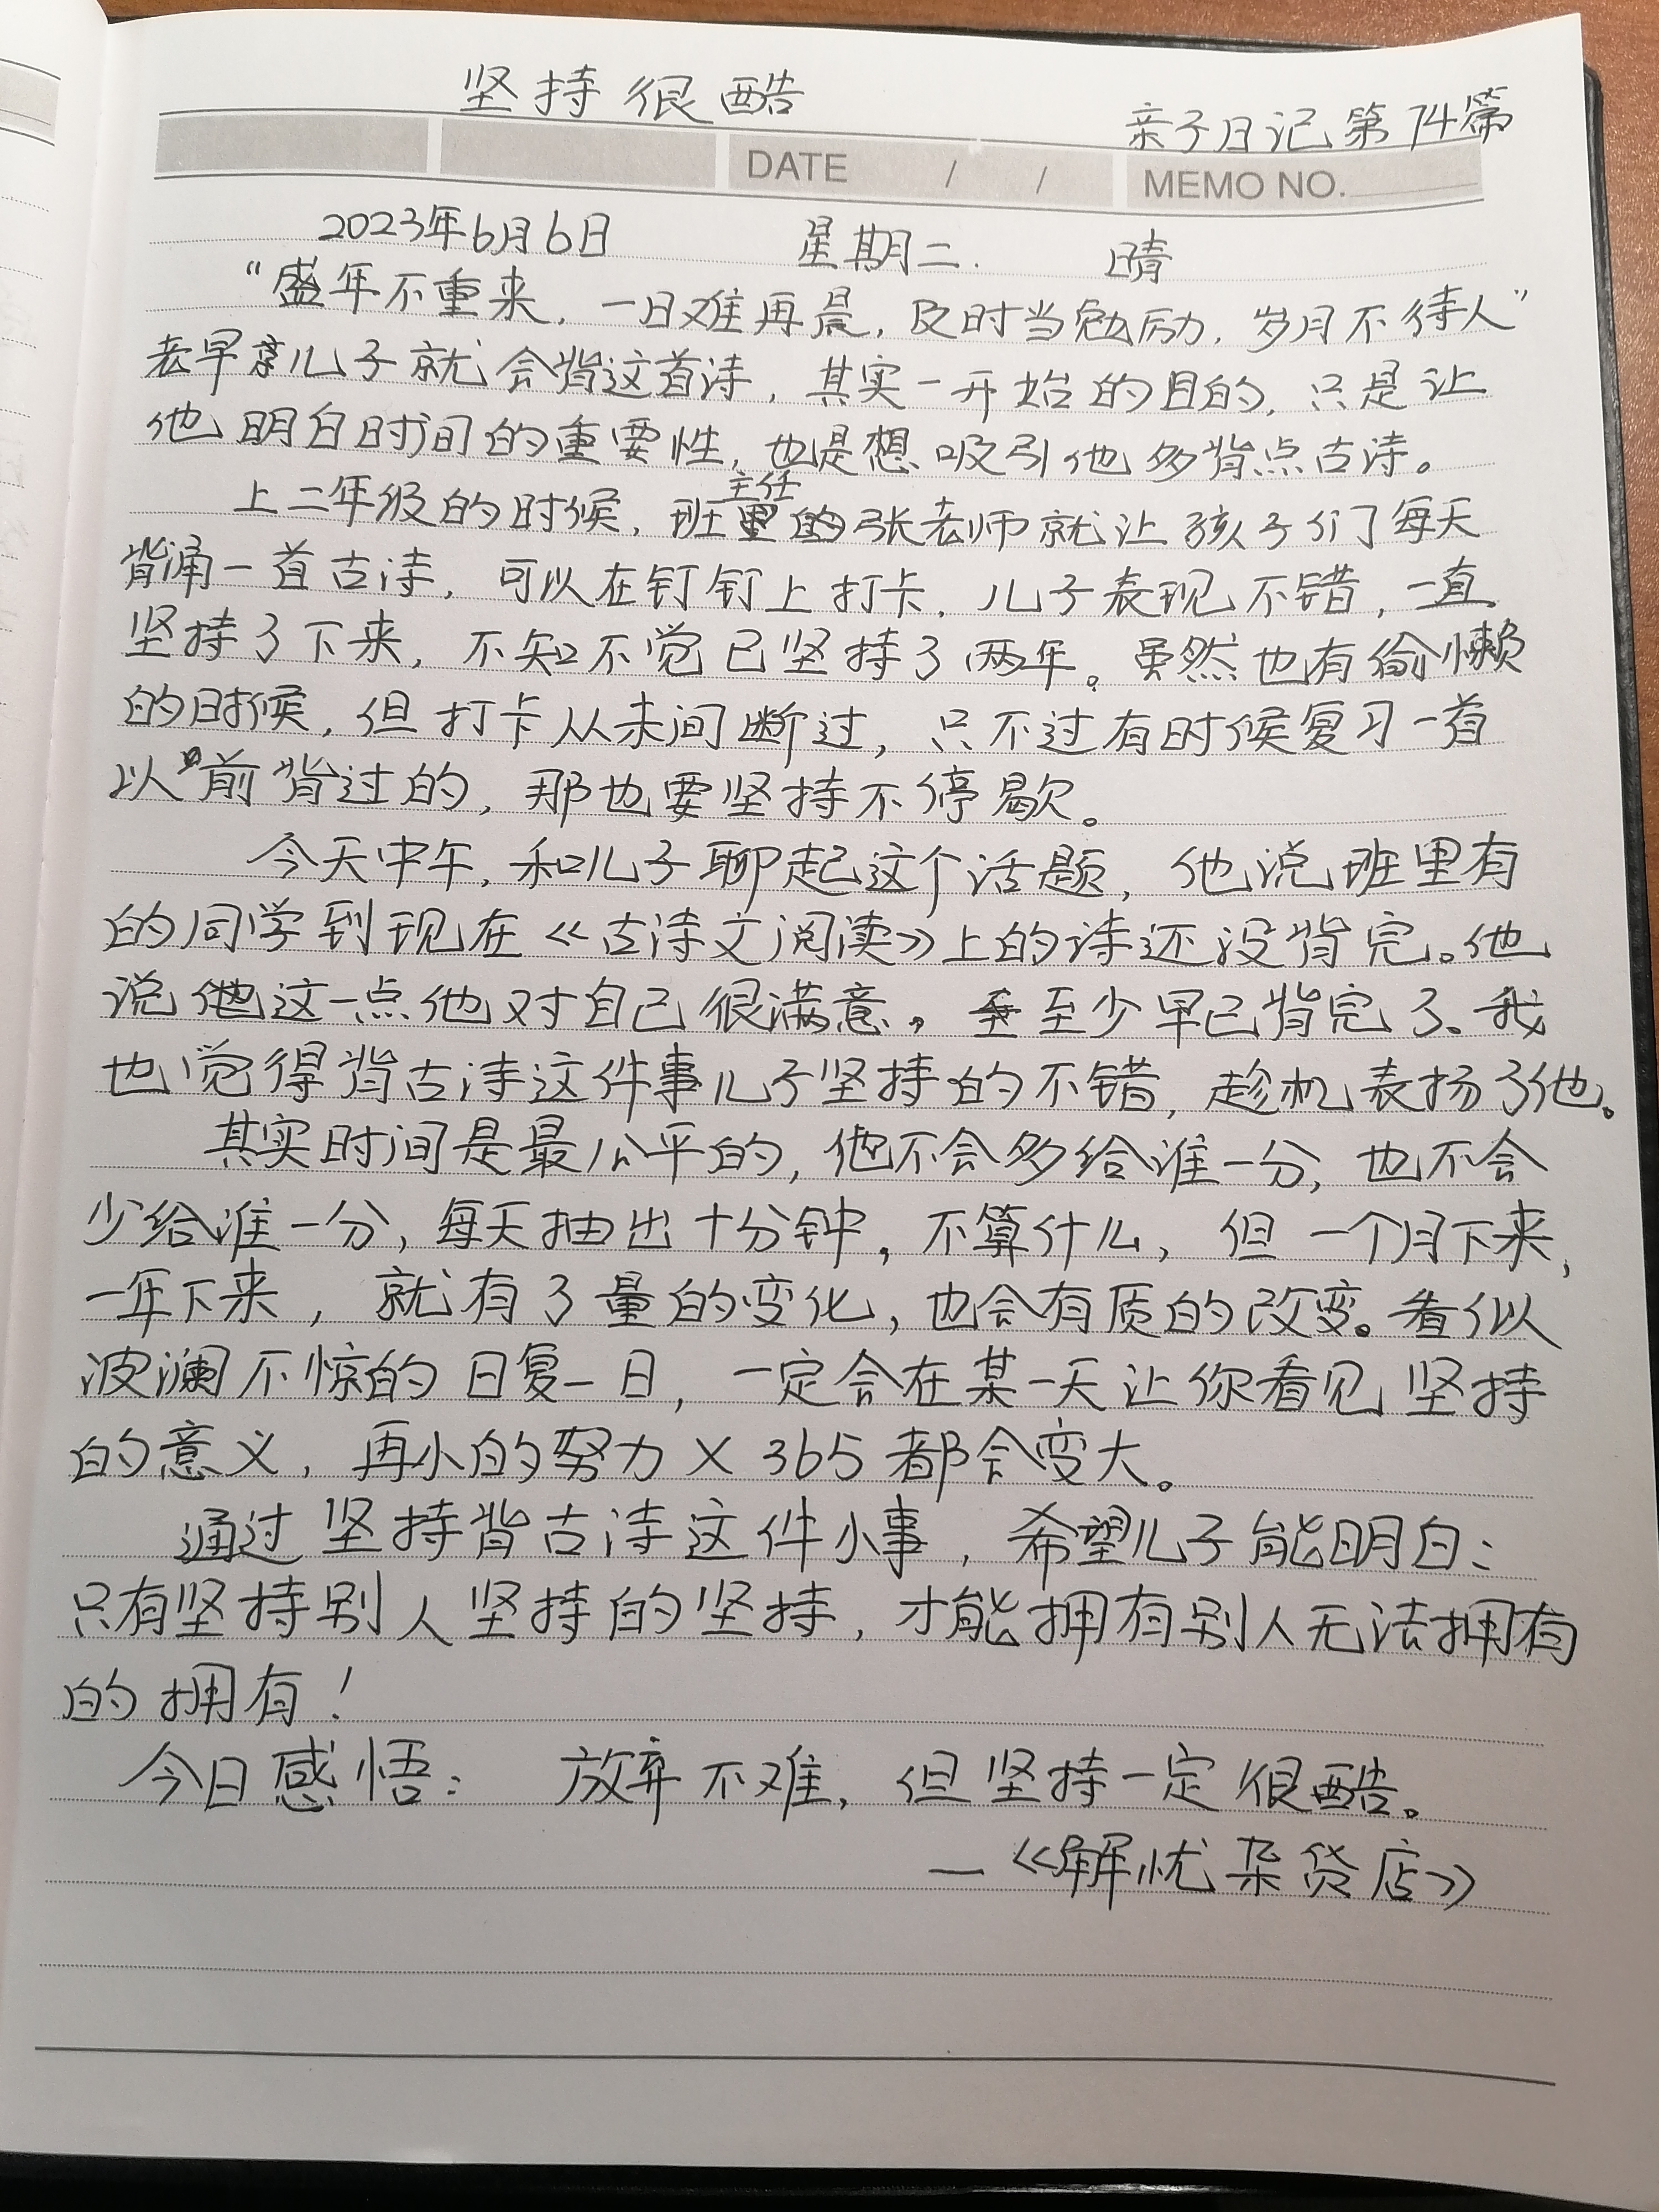 坚持很酷
亲子日记第74篇
DATE / / MEMO NO.
2023年6月6日 星期二. 晴
“盛年不重来，一日难再晨，及时当勉励，岁月不待人”
老早儿子就会背这首诗，其实一开始的目的，只是让
他明白时间的重要性，也是想吸引他多背点古诗。
上二年级的时候，班主任张老师就让孩子们每天
背诵一首古诗，可以在钉钉上打卡，儿子表现不错，一直
坚持了下来，不知不觉已坚持了两年。虽然也有偷懒
的时候，但打卡从未间断过，只不过有时候复习一首
以前背过的，那也要坚持不停歇。
今天中午，和儿子聊起这个话题，他说班里有
的同学到现在《古诗文阅读》上的诗还没背完。他
说这一点他对自己很满意，至少早已背完了。我
也觉得背古诗这件事儿子坚持的不错，趁机表扬了他。
其实时间是最公平的，他不会多给谁一分，也不会
少给谁一分，每天抽出十分钟，不算什么，但一个月下来，
一年下来，就有了量的变化，也会有质的改变。看似
波澜不惊的日复一日，一定会在某一天让你看见坚持
的意义，再小的努力×365都会变大。
通过坚持背古诗这件小事，希望儿子能明白：
只有坚持别人坚持的坚持，才能拥有别人无法拥有
的拥有！
今日感悟： 放弃不难，但坚持一定很酷。
—《解忧杂货店》